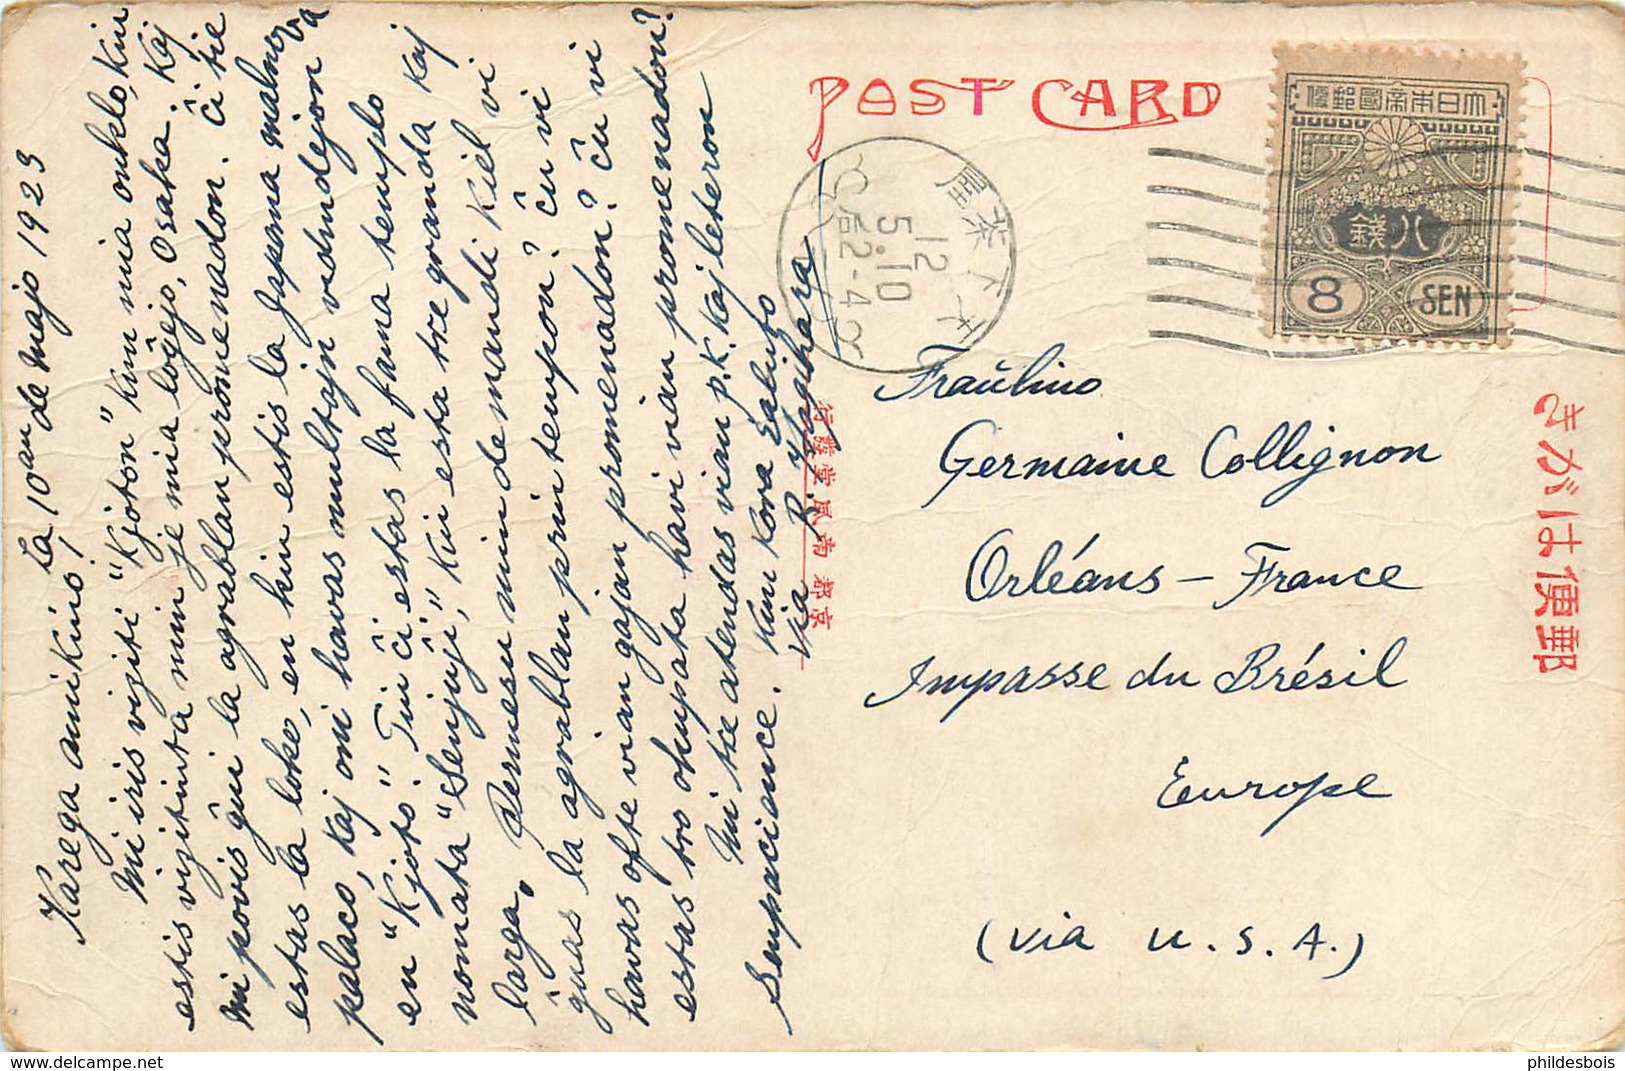 La 10an de Majo 1923
Karega amikino,
Mi iris viziti "Kjoton" kun mia onklo, kiu
estis vizitinta min je mia loĝejo, Osaka. Kaj
mi povis ĝui la agrablan promenadon. Ĉi tie
estas la loke, en kiu estis la Japana malnova
palaco, kaj oni havas multajn vidindejon
en "Kjoto". Tiu ĉi estas la fama templo
nomata "Senjuĝi", kiu esta tre granda kaj
larga. Permesu min demandi kiel vi
ĝuas la agrablan printempon? Ĉu vi
havas ofte vian gajan promenadon? Ĉu vi
estas tro okupata havi vian promenadon?
Mi tre atendas vian p.k. kaj leteron
senpacience. Kun kora saluto
Via R. Yagihara
POST CARD
大日本帝國郵便
八錢
8 SEN
12
5.10
后2-4
Fraŭlino
Germaine Collignon
Orléans – France
Impasse du Brésil
Europe
(via U.S.A.)
きがは便郵
京都
phildesbois